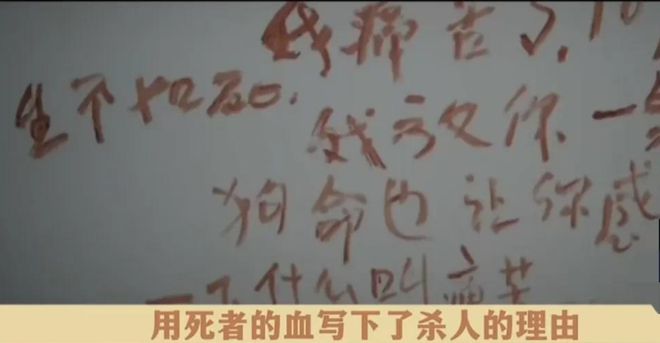 我痛苦了.10
生不如死.
我放你一
狗命也让你感
一下什么叫痛苦
用死者的血写下了杀人的理由